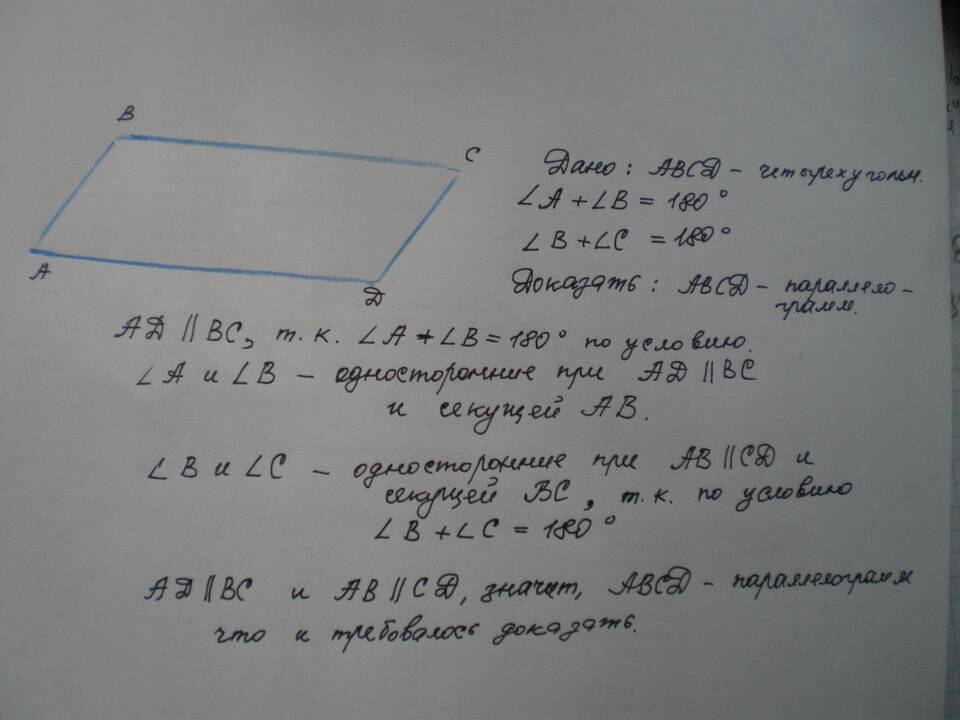 B
C
A
D
Дано: ABCD - четырехугольн.
∠A + ∠B = 180°
∠B + ∠C = 180°
Доказать: ABCD - параллело-
грамм.
AD || BC, т.к. ∠A + ∠B = 180° по условию.
∠A и ∠B - односторонние при AD || BC
и секущей AB.
∠B и ∠C - односторонние при AB || CD и
секущей BC, т.к. по условию
∠B + ∠C = 180°
AD || BC и AB || CD, значит, ABCD - параллелограмм
что и требовалось доказать.